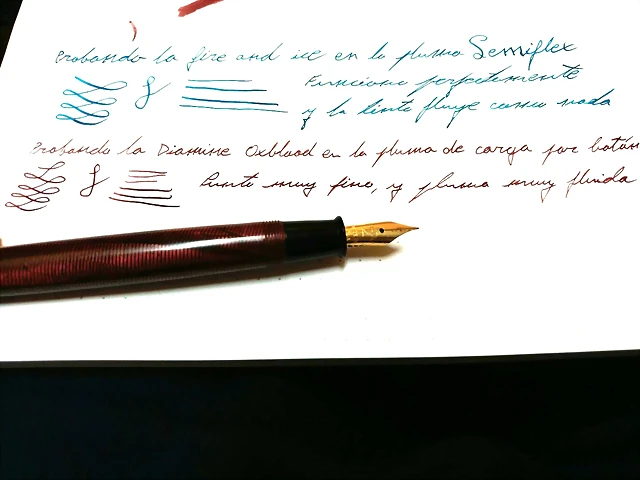 Probando la fire and ice en la pluma Semiflex
Funciona perfectamente
y la tinta fluye como nada
Probando la Diamine Oxblood en la pluma de carga por botón
Punto muy fino, y pluma muy fluida